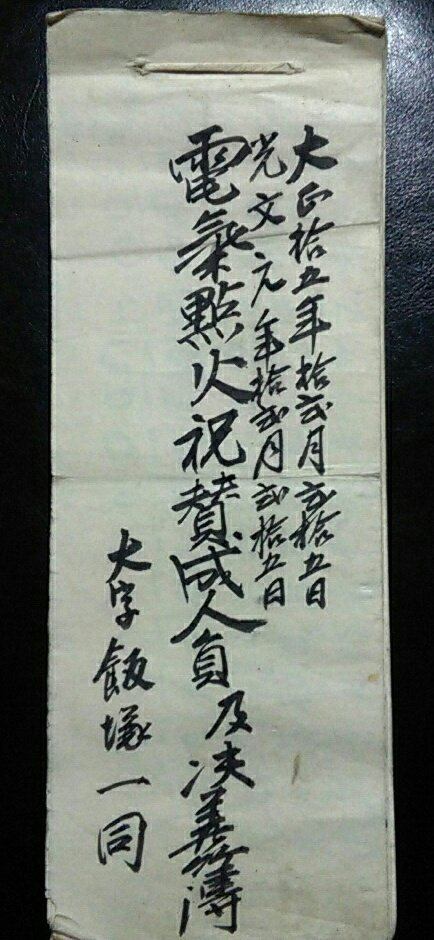 大正拾五年拾弐月弐拾五日
光文元年拾弐月弐拾五日
電氣點火祝賛成人員及决義簿
大字飯塚一同